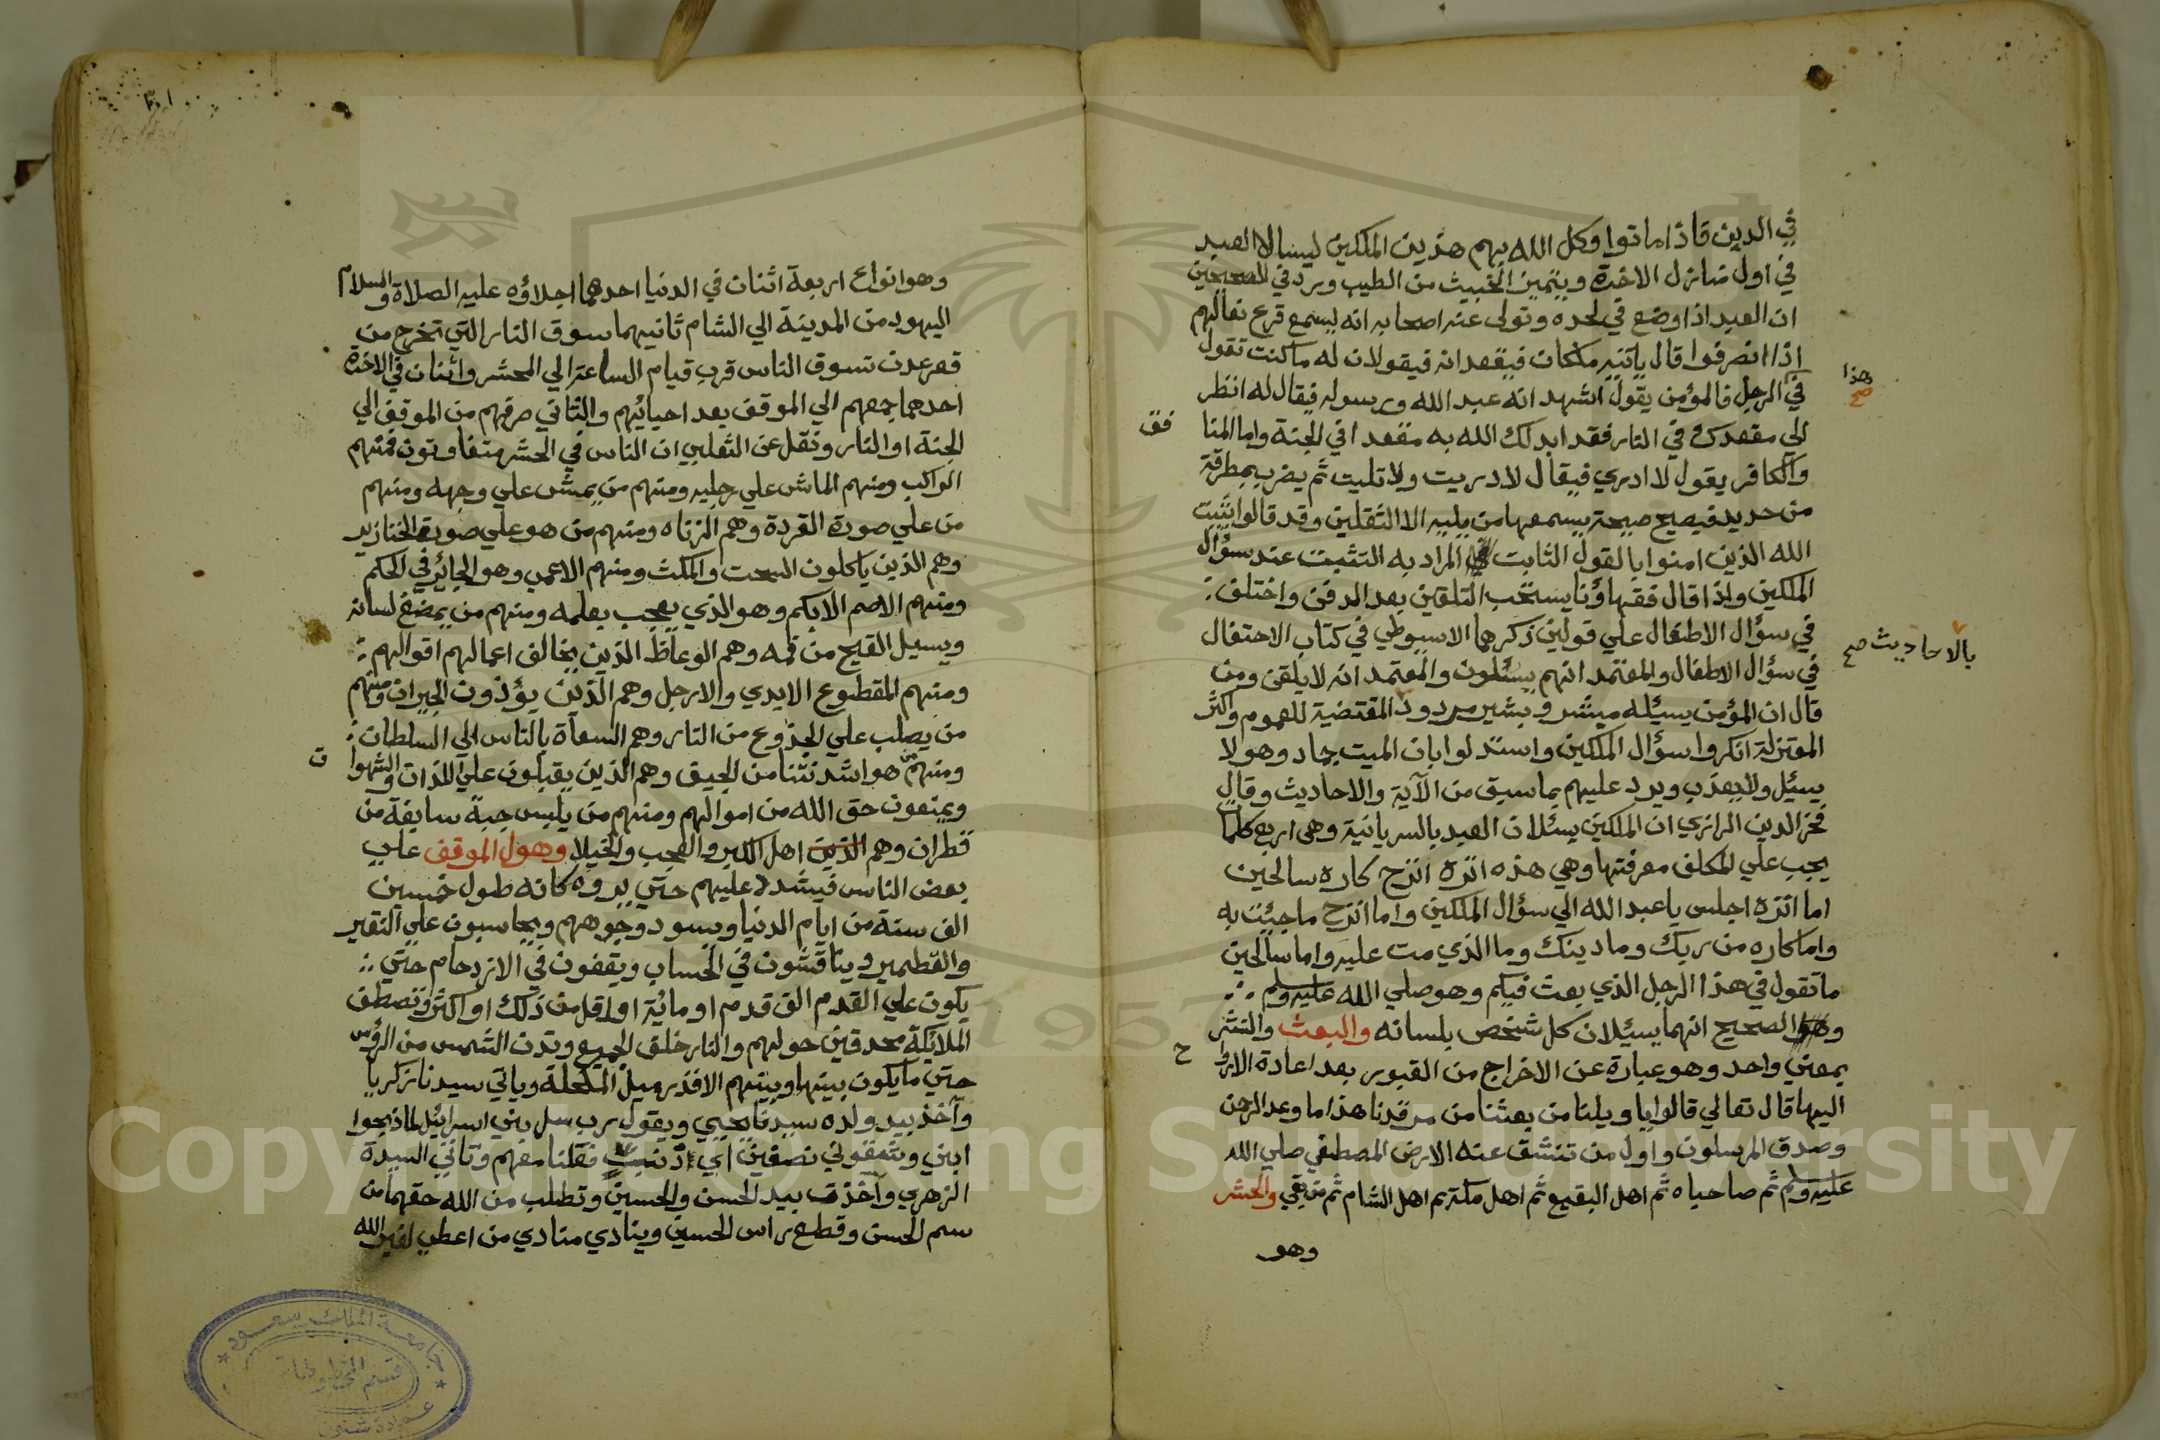 في الدين فاذا ماتوا وكل الله بهم هذين الملكين ليسالا العبد
في اول منازل الاخرة ويتميز الخبيث من الطيب وورد في الصحيحين
ان العبد اذا وضع في لحده وتولى عنه اصحابه انه ليسمع قرع نعالهم
اذا انصرفوا قال ياتيه ملكان فيقعدانه فيقولان له ما كنت تقول
هذا صح
في الرجل فالمؤمن يقول اشهد انه عبد الله ورسوله فيقال له انظر
الي مقعدك في النار فقد ابدلك الله به مقعدا في الجنة واما المنا
فق
والكافر يقول لا ادري فيقال لا دريت ولا تليت ثم يضرب بمطرقة
من حديد فيصيح صيحة يسمعها من يليه الا الثقلين وقد قالوا يثبت
الله الذين امنوا بالقول الثابت المراد به التثبت عند سؤال
الملكين واذا قال فقهاؤنا يستحب التلقين بعد الدفن واختلف
في سؤال الاطفال علي قولين ذكرهما الاسيوطي في كتاب الاحتفال
في سؤال الاطفال والمعتمد انهم يسئلون والمعتمد انه لا يلقن ومن
بالاحاديث صح
قال ان المؤمن يسيئله مبشر وبشير مردود المقتضية للعموم واكثر
المعتزلة انكروا سؤال الملكين واستدلوا بان الميت جماد وهو لا
يسئل ولا يعذب ويرد عليهم بما سبق من الآية والاحاديث وقال
فخر الدين الرازي ان الملكين يسئلان العبد بالسريانية وهي اربع كلمات
يجب علي المكلف معرفتها وهي هذه اتره اترح كاره سالحين
اما اتره اجلس يا عبد الله الي سؤال الملكين واما اترح ما جيئت به
واما كاره من ربك وما دينك وما الذي مت عليه واما سالحين
ما تقول في هذا الرجل الذي بعث فيكم وهو صلي الله عليه وسلم
والصحيح انهما يسئلان كل شخص بلسانه والبعث والنشر
بمعني واحد وهو عبارة عن الاخراج من القبور بعد اعادة الاروا
ح
اليها قال تعالي قالوا يا ويلنا من بعثنا من مرقدنا هذا ما وعد الرحمن
وصدق المرسلون واول من تنشق عنه الارض المصطفي صلي الله
عليه وسلم ثم صاحباه ثم اهل البقيع ثم اهل مكة ثم اهل الشام ثم من بقي والحشر
وهو
وهو انواع اربعة اثنان في الدنيا احدهما اجلاؤه عليه الصلاة والسلام
اليهود من المدينة الي الشام ثانيهما سوق النار التي تخرج من
قعر عدن تسوق الناس قرب قيام الساعة الي المحشر واثنان في الاخرة
احدهما جمعهم الي الموقف بعد احيائهم والثاني صرفهم من الموقف الي
الجنة او النار ونقل عن الثعلبي ان الناس في الحشر متفاوتون فمنهم
الراكب ومنهم الماش علي رجليه ومنهم من يمشي علي وجهه ومنهم
من علي صورة القردة وهم الزناه ومنهم من هو علي صورة الخنازير
وهم الذين ياكلون السحت والمكث ومنهم الاعمي وهو الجائر في الحكم
ومنهم الاصم الابكم وهو الذي يعجب بعلمه ومنهم من يمضغ لسانه
ويسيل القيح من فمه وهم الوعاظ الذين يخالف اعمالهم اقوالهم
ومنهم المقطوع الايدي والارجل وهم الذين يؤذون الجيران ومنهم
من يصلب علي الجذوع من النار وهم السعاة بالناس الي السلطان
ومنهم من هو اشد نتنا من الجيف وهم الذين يقبلون علي اللذات والشهوا
ت
ويمنعون حق الله من اموالهم ومنهم من يلبس جبة سابغة من
قطران وهم الذين اهل الكبر والعجب والخيلا وهول الموقف علي
بعض الناس فيشدد عليهم حتي يروه كانه طول خمسين
الف سنة من ايام الدنيا ويسود وجوههم ويحاسبون علي النقير
والقطمير ويناقشون في الحساب ويقفون في الازدحام حتي
يكون علي القدم الف قدم او مائة او اقل من ذلك او اكثر وتصطف
الملائكة محدقين حولهم والنار خلف الجميع وتدن الشمس من الرؤس
حتي ما يكون بينها وبينهم الا قدر ميل المكحلة وياتي سيدنا زكريا
وآخذ بيد ولده سيدنا يحيي ويقول رب سل بني اسرائيل لما ذبحوا
ابني نصفين اي ذنب فعلنا معهم وتاتي السيدة
الزهري وآخذت بيد الحسن والحسين وتطلب من الله حقهما من
سم الحسن وقطع راس الحسين وينادي منادي من اعطي لغير الله
جامعة الملك سعود
قسم المخطوطات
عمادة شئون
Copyright © King Saud University
1957